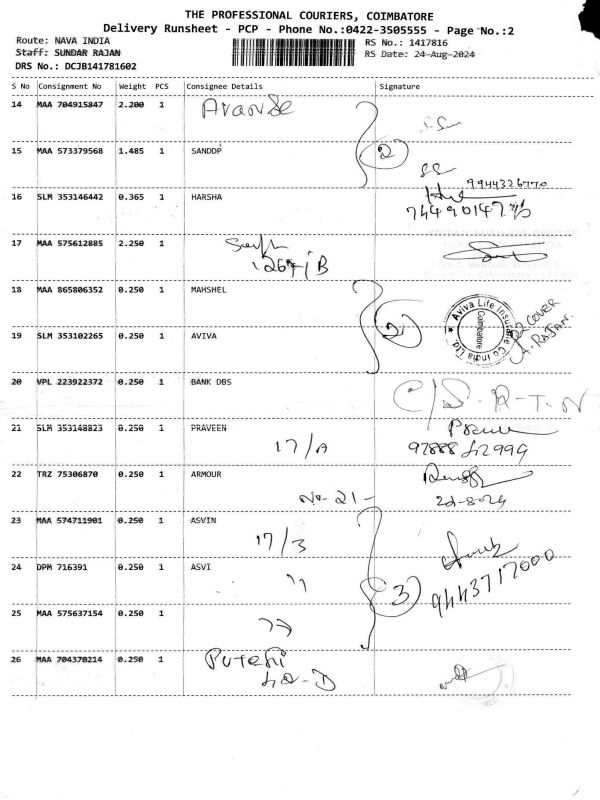 THE PROFESSIONAL COURIERS, COIMBATORE
Delivery Runsheet - PCP - Phone No.:0422-3505555 - Page No.:2
Route: NAVA INDIA RS No.: 1417816
Staff: SUNDAR RAJAN RS Date: 24-Aug-2024
DRS No.: DCJB141781602
S No Consignment No Weight PCS Consignee Details Signature
14 MAA 704915847 2.200 1
15 MAA 573379568 1.485 1 SANDDP 2
9944326770
16 SLM 353146442 0.365 1 HARSHA
17 MAA 575612885 2.250 1
18 MAA 865806352 0.250 1 MAHSHEL
19 SLM 353102265 0.250 1 AVIVA 2 Aviva Life Insurance Co India Ltd. Coimbatore
COVER
A. RAJAN
20 VPL 223922372 0.250 1 BANK DBS C/S. R-T-N
21 SLM 353148823 0.250 1 PRAVEEN
17/A 97888 42999
22 TRZ 75306870 0.250 1 ARMOUR
No-21-
23 MAA 574711901 0.250 1 ASVIN
17/3
24 DPM 716391 0.250 1 ASVI
" 3 9443717000
25 MAA 575637154 0.250 1
26 MAA 704370214 0.250 1
42-D